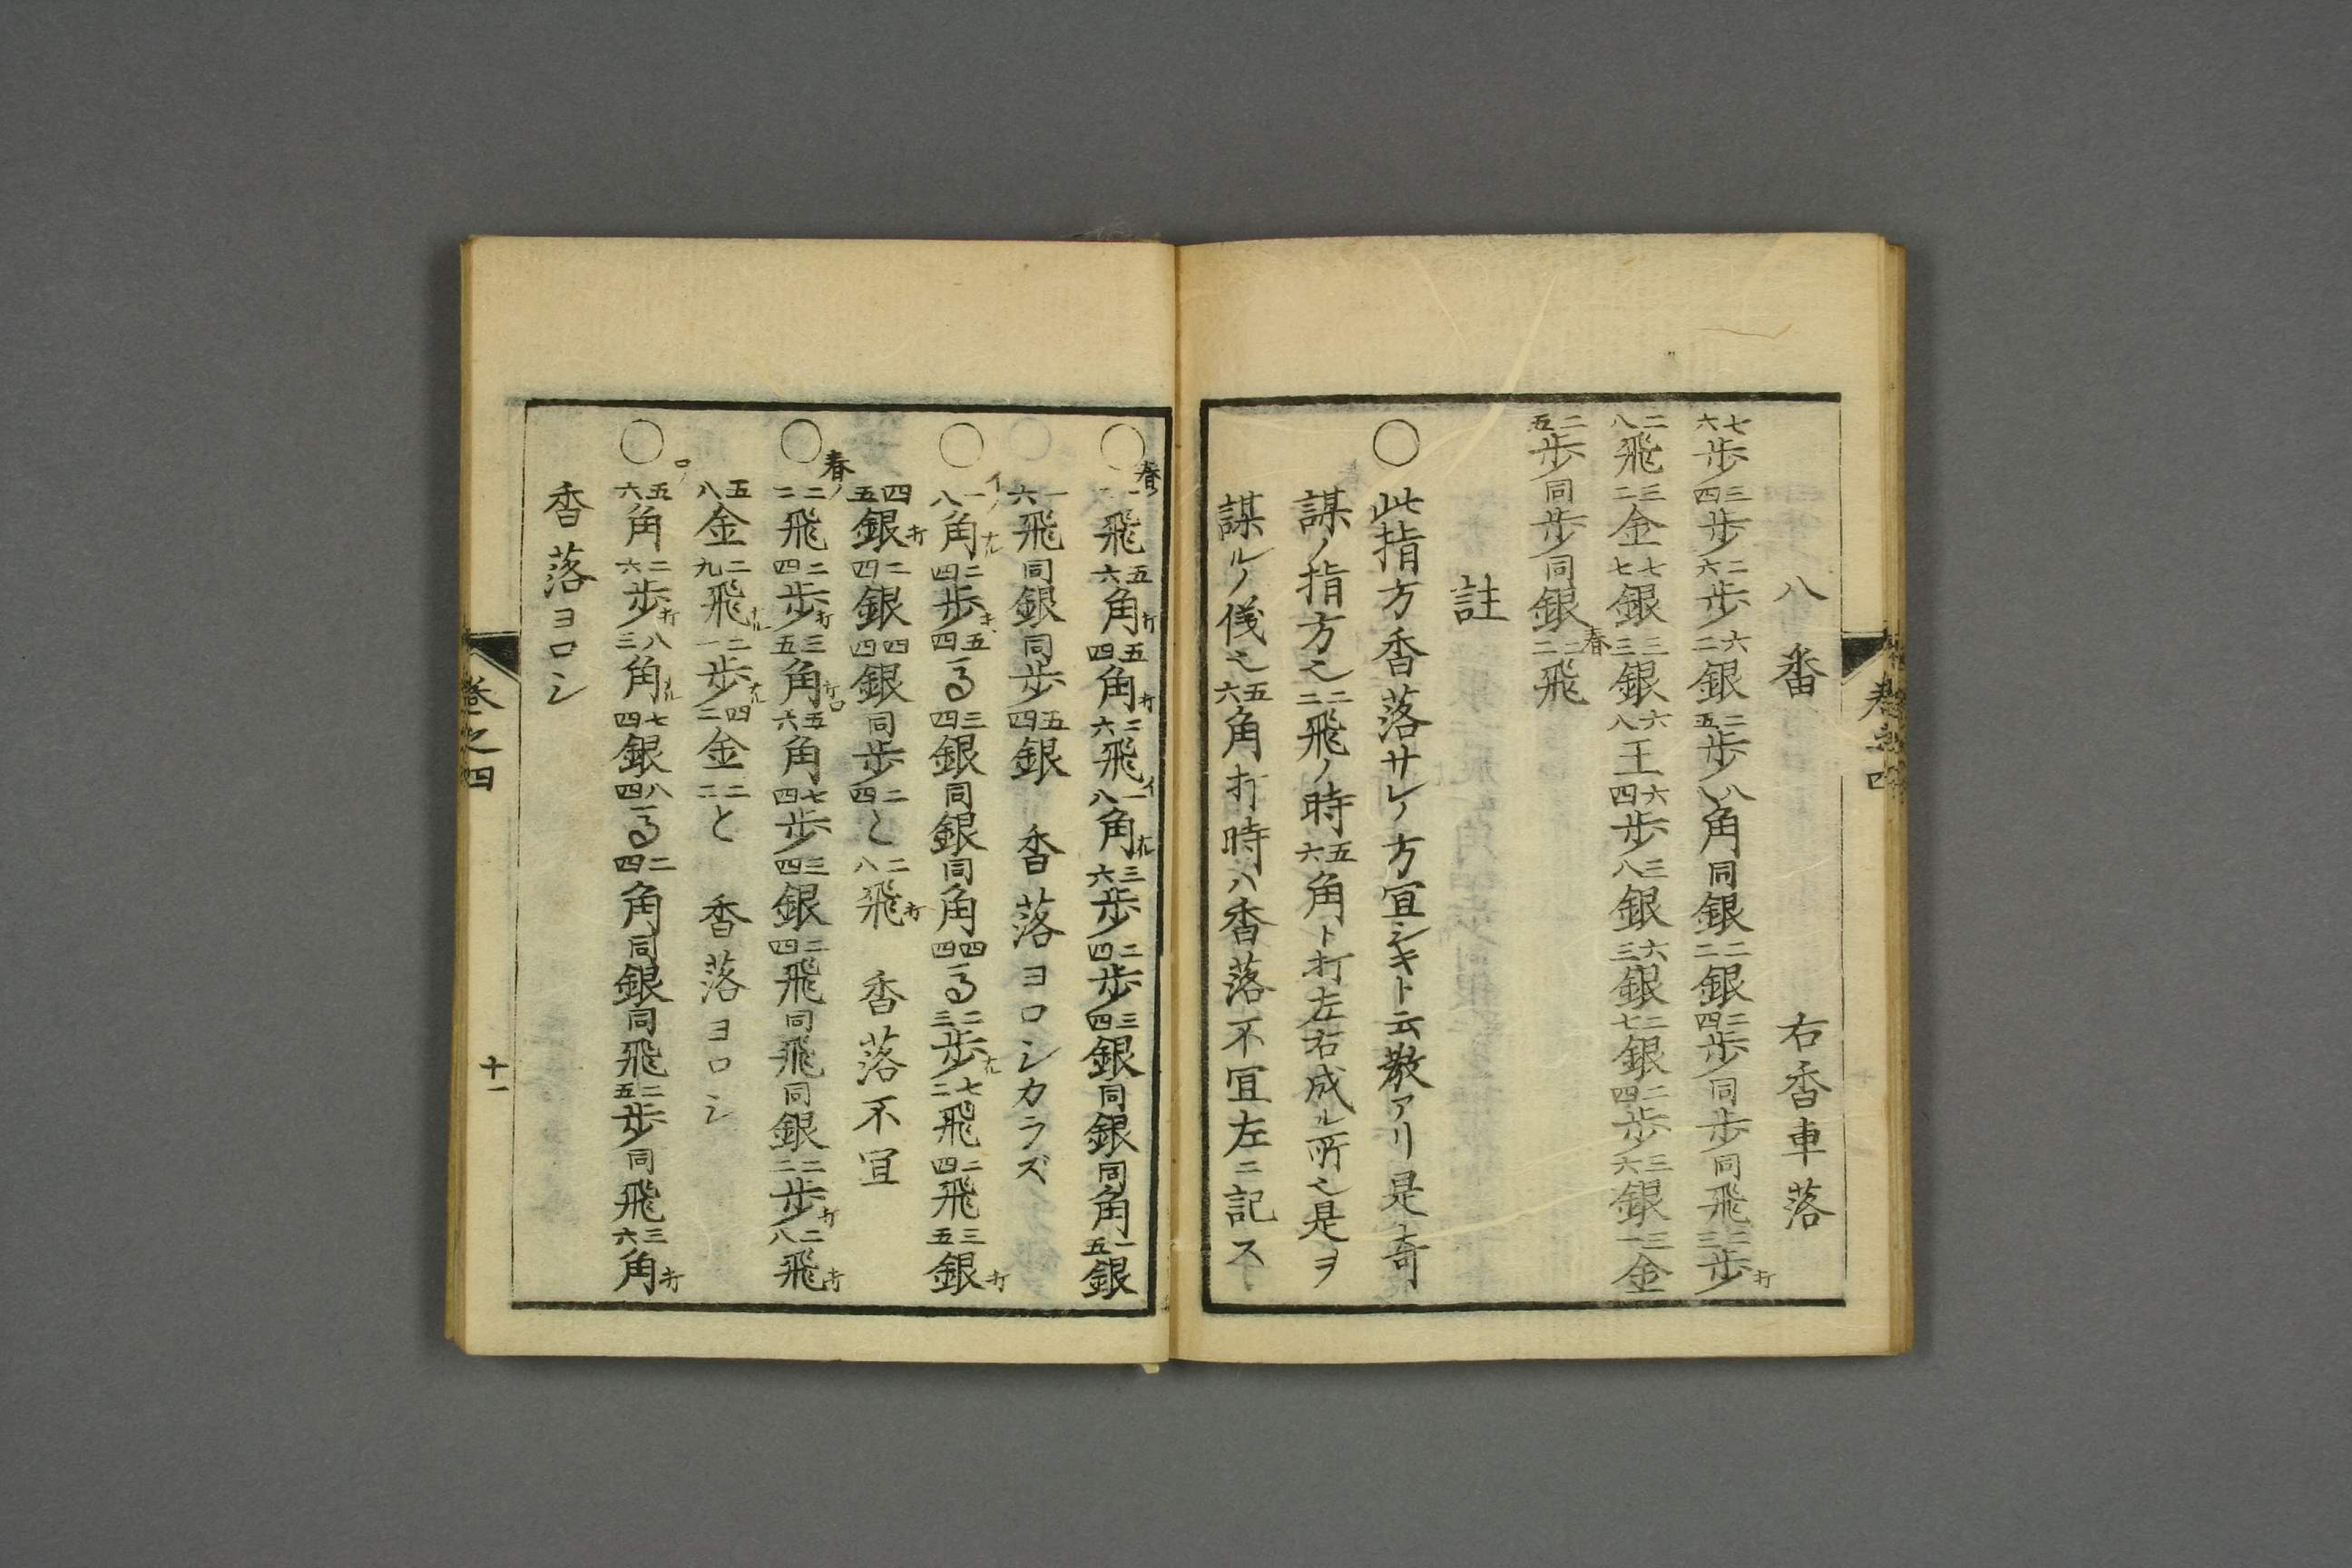 八番　右香車落
七六歩 三四歩 二六歩 六二銀 二五歩 八八角 同銀 二二銀 二四歩 同歩 同飛 二三歩打
二八飛 三二金 七七銀 三三銀 六八王 六四歩 三八銀 六三銀 二七銀 二四歩 三六銀 三一金
二五歩 同歩 同銀 春二二飛
註
○此指方香落サレノ方宜シキト云教アリ是ハ奇
謀ノ指方也二二飛ノ時五六角ト打左右成ル所也是ヲ
謀ルノ儀也五六角打時ハ香落不宜左ニ記ス
巻之四
○春ノ 飛 五六角打 五四角打 二六飛イ 一八角ナル 三六歩 二四歩 三四銀 同銀 同角 一五銀
一六飛 同銀 同歩 五四銀 香落ヨロシカラズ
○イノ一八角ナル 二四歩 五四馬 三四銀 同銀 同角 四四馬 二三歩ナル 七二飛 二四飛 三五銀打
四五銀打 二四銀 四四銀 同歩 二四と 二八飛打 香落不宜
○春ノ二二飛 二四歩打 三五角打ロ 五六角 七四歩 三四銀 二四飛 同飛 同銀 二二歩打 二八飛打
五八金 二九飛ナル 二一歩ナル 四二金 二二と 香落ヨロシ
○ロノ五六角 二六歩打 八三角ナル 七四銀 八四馬 二四角 同銀 同飛 二五歩 同飛 三六角打
香落ヨロシ
巻之四
十一